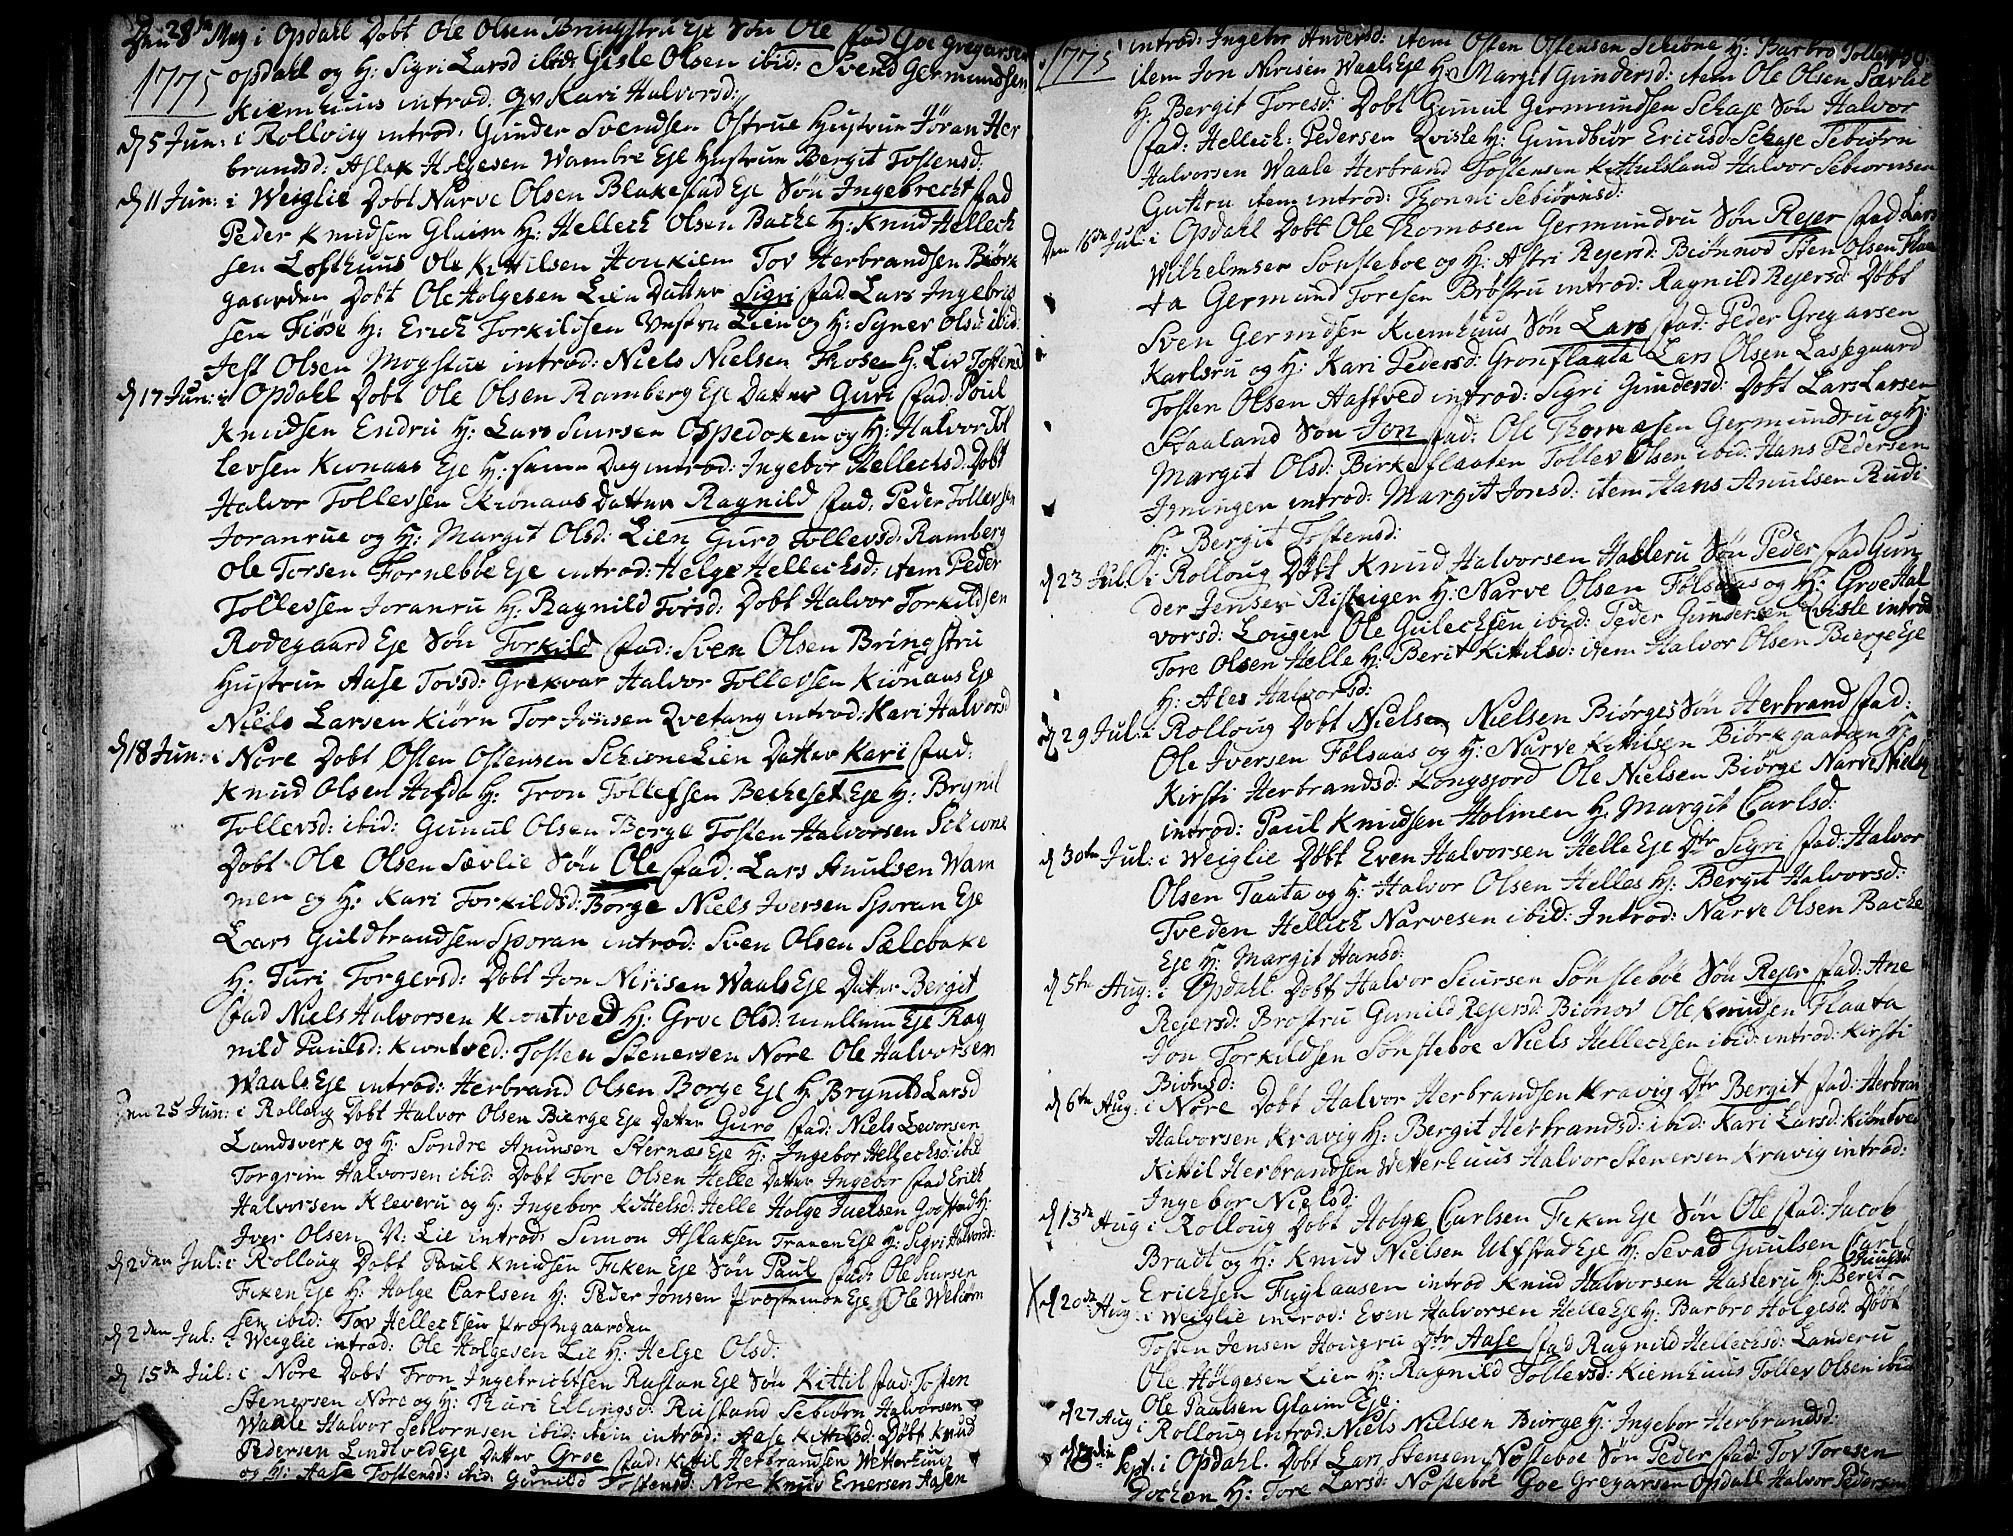 Den 28de May i Opdahl Dobt Ole Olsen Bringstru Eje Søn Ole fad Goe Gregarsen
1775 Opdahl og H: Sigri Larsd ibid: Gisle Olsen ibid: Svend Germundsen
Kiemhuus introd: Qv Kari Halvorsd:
d 5 Jun: i Rolloug introd: Gunder Svendsen Østrue Hustrue Jøran Her
brandsd: Aslak Holgesen Wambre Eje Hustrue Bergit Tostensd:
d 11 Jun: i Weiglie Dobt Narve Olsen Blakestad Eje Søn Ingebrecht fad
Peder Knudsen Glaim H: Hellech Olsen Bache H: Knud Hellech
sen Lofthuus Ole Kittilsen Houkiem Tov Herbrandsen Biørk
gaarden Dobt Ole Holgesen Lien Datter Sigri fad Lars Ingebrig
sen Fiøse H: Erich Torkildsen Lien og H: Signe Olsd: ibid:
Jest Olsen Mogstue introd: Niels Nielsen Fhosen H: Liv Tostensd
d 17 Jun: i Opdahl Dobt Ole Olsen Ramberg Eje Datter Guri fad: Poul
Knudsen Endru H: Lars Siursen Ospedoken og H: Halvor Tol
levsen Kionaas Eje H: samme Dag introd: Ingebor Hellechsd: Dobt
Halvor Tollevsen Kiønaas Datter Ragnild fad: Peder Tollevsen
Joranrue og H: Margit Olsd: Lien Guro Tollevsd: Ramberg
Ole Torsen Forneboe Eje introd: Helge Hellechsd: item Peder
Tollevsen Joranru H: Ragnild Torsd: Dobt Halvor Torkildsen
Rodegaard Eje Søn Torkild fad: Sven Olsen Bringstru
Hustrue Aase Tovsd: Grekvar Halvor Tollevsen Kiönaas Eje
Niels Larsen Kiørn Tor Jonsen Qvetang introd: Kari Halvorsd
d 18 Jun: i Nore Dobt Østen Ostensen Schione Lien Datter Kari fad:
Knud Olsen Hofda H: Tron Tollefsen Becheset Eje H: Brynil
Tollevsd: ibid: Gunul Olsen Borge Tosten Halvorsen Schione
Dobt Ole Olsen Sævlie Søn Ole fad: Lars Anulsen Wam
men og H: Kari Torkildsd: Borge Niels Iversen Sporan Eje
Lars Guldbrandsen Sporan introd: Sven Olsen Sælebake
H: Turi Torgersd: Dobt Jon Nirisen Waals Eje Datter Bergit
fad Niels Halvorsen Kiontved H: Groe Olsd: mellum Eje Rag
nild Paulsd: Kiontved: Tosten Stenersen Nore Ole Halvorsen
Waals Eje introd: Herbrand Olsen Borge Eje H: Brynild Larsd
Den 25 Jun: i Rolloug Dobt Halvor Olsen Bierge Eje Datter Guro fad: Niels Levorsen
Landsverk og H: Søndre Anunsen Sternæs Eje H: Ingebor Hellechsd: ibid
Torgrim Halvorsen ibid: Dobt Tore Olsen Helle Datter Ingebor fad Erich
Halvorsen Kleveru og H: Ingebor Kittelsd: Helle Holge Juelsen Goostad H:
Iver Olsen N: Lie introd: Simon Aslaksen Traaen Eje H: Sigri Halvorsd:
d 2den Jul: i Rolloug Dobt Paul Knudsen Feken Eje Søn Paul fad: Ole Siursen
Feken Eje H: Holge Carlsen H: Peder Jonsen Præstemoen Eje Ole Webiørn
sen ibid: Tov Hellechsen Præstegaarden
d 2den Jul: i Weiglie introd: Ole Holgesen Lie H: Helge Olsd:
d 15de Jul: i Nore Dobt Tron Ingebrichtsen Rustan Eje Søn Kittil fad: Tosten
Stenersen Nore og H: Thuri Ellingsd: Rustand Sebiørn Halvorsen
Waale Halvor Sebiornsen ibid: item introd: Aase Kittilsd: Døbt Knud
Pedersen Lindtved Eje Datter Groe fad: Kittil Herbrandsen Wetterhuus
og H: Aase Tostensd: ibid: Gunild Tostensd: Nore Knud Enersen Aasen
1775 introd: Ingebor Andersd: item Osten Ostensen Schione H: Barbro Tollevsd:
item Jon Nirisen Waals Eje H: Margit Gundersd: item Ole Olsen Sævlie
H: Bergit Toresd: Dobt Gunul Germundsen Skaje Søn Halvor
fad: Hellech: Pedersen Qvisle H: Gundbiør Erichsd: Schaje Sebiørn
Halvorsen Waale Herbrand Tostensen Kittilsland Halvor Sebiornsen
Guttru item introd: Thonni Sebiørnsd:
Den 16de Jul: i Opdahl Dobt Ole Thomæsen Germundru Søn Rejer fad Lars
Wilhelmsen Sønsteboe og H: Astri Rejersd: Biønnod Sten Olsen Flaa
ta Germund Toresen Bröstru introd: Ragnild Rejersd: Dobt
Sven Germdsen Kiemhuus Søn Lars fad: Peder Gregarsen
Karlsru og H: Kari Pedersd: Gronflaata Lars Olsen Lassegaard
Tosten Olsen Aastved introd: Sigri Gundersd: Dobt Lars Larsen
Staaland Søn Jon fad: Ole Thomæsen Germundru og H:
Margit Olsd: Birkeflaaten Tollev Olsen ibid: Hans Pedersen
Igningen introd: Margit Jonsd: item Hans Anulsen Rudi
H: Bergit Tostensd:
d 23 Jul: i Rolloug Døbt Knud Halvorsen Hasleru Søn Peder fad Gun
der Jensen Risteigen H: Narve Olsen Fölsaas og H: Groe Hal
vorsd: Lougen Ole Gulechsen ibid: Peder Gundersen Qvisle introd:
Tore Olsen Helle H: Berit Kittilsd: item Halvor Olsen Bierge Eje
H: Ales Halvorsd:
d 29 Jul: i Rolloug Dobt Nielsen Nielsen Biørge Søn Herbrand fad:
Ole Iversen Følsaas og H: Narve Kittilsen Biörkgaarden H:
Kirsti Herbrandsd: Kongsjord Ole Nielsen Biørge Narve Nielsen
introd: Paul Knudsen Holmen H: Margit Carlsd:
d 30te Jul: i Weiglie Døbt Even Halvorsen Helle Eje Dtr Sigri fad: Halvor
Olsen Taata og H: Halvor Olsen Helles H: Bergit Halvorsd:
Tveden Hellich Narvesen ibid: Introd: Narve Olsen Bache
Eje H: Margit Hansd:
d 5te Aug: i Opdahl Dobt Halvor Siursen Sønsteboe Søn Rejer fad: Ane
Rejersd: Brøstru Gunild Rejersd: Biönov Ole Knudsen Flaata
Jon Torkildsen Sønsteboe Niels Hellechsen ibid: introd: Kirsti
Biönsd:
d 6te Aug: i Nore Dobt Halvor Herbrandsen Kravig Dtr Bergit fad: Herbran
Halvorsen Kravig H: Bergit Herbrandsd: ibid: Kari Larsd: Kiöntved
Kittil Herbrandsen Wetterhuus Halvor Stenersen Kravig introd:
Ingebor Nielsd:
d 13de Aug i Rolloug Dobt Holge Carlsen Feken Eje Søn Ole fad: Jacob
Bradt og H: Knud Nielsen Ulfstad Eje H: Sevad Juulsen Carl
Erichsen Fuglaasen introd Knud Halvorsen Hasleru H: Beret Juulsd
d 20de Aug: i Weiglie introd: Even Halvorsen Helle Eje H: Barbro Holgesd: Döbt
Tosten Jensen Hougru Dtr Aase fad Ragnild Hellechsd: Landeru
Ole Holgesen Lien H: Ragnild Tollevsd: Kiemhuus Tollev Olsen ibid
Ole Paulsen Glaim Eje:
d 27 Aug i Rolloug introd: Niels Nielsen Biørge H: Ingebor Herbrandsd:
d 3die Sept: i Opdahl Dobt Lars Stensen Nøsteboe Søn Peder fad: Tov Toresen
H: Tore Larsd: Nøsteboe Goe Gregarsen Opdahl Halvor Pedersen